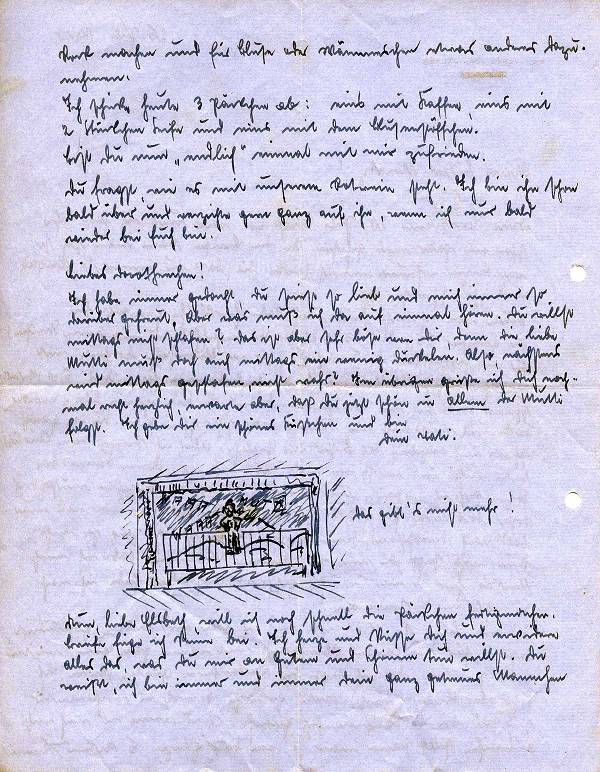 Rock machen und für Bluse oder Wämmschen etwas anderes dazu-
nehmen.
Ich schicke heute 3 Päckchen ab: eins mit Kaffee, eins mit
2 Stückchen Seife und eins mit dem
Bist Du nun „endlich“ einmal mit mir zufrieden.
Du fragst, wie es mit unserem Rotwein steht. Ich bin ihn schon
bald über und verzichte gern ganz auf ihn, wenn ich nur bald
wieder bei Euch bin.
Liebes Dorothenchen!
Ich habe immer gedacht, Du seist so lieb und mich immer so
darüber gefreut. Aber was muß ich da auf einmal hören. Du willst
mittags nicht schlafen? Das ist aber sehr böse von Dir, denn die liebe
Mutti muß doch auch mittags ein wenig Also, nächstens
wird mittags geschlafen, nicht wahr? Im übrigen grüße ich Dich noch-
mal recht herzlich, erwarte aber, daß Du jetzt schön in allem der Mutti
folgst. Ich gebe Dir ein schönes Küßchen und bin
Dein Vati.
Das gibt's nicht mehr!
WAAA
WAAAA
Nun, liebe Elsbeth will ich noch schnell die Päckchen fertigmachen.
Briefe füge ich keine bei. Ich herze und küsse Dich und erwidere
alles das, was Du mir an Gutem und Schönem tun willst. Du
weißt, ich bin immer und immer Dein ganz getreues Mannchen